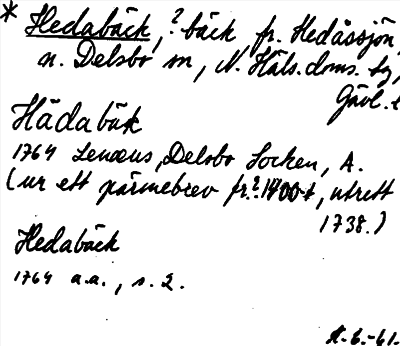 * Hedabäck, ? bäck fr. Hedåssjön,
n. Delsbo sn, N. Häls. doms. sg,
Gävl. l
Hädabäk
1764 Lenæus, Delsbo Socken, A.
(ur ett pärmebrev fr. ? 1400-t, utrett
1738.)
Hedabäck
1764 a.a., s. 2.
A. 6.-61.